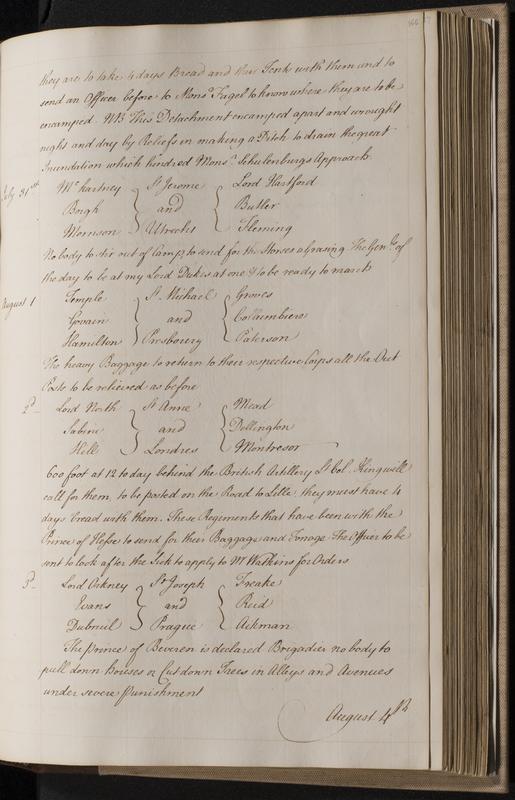 166
they are to take 4 days Bread and their Tents with them and to
send an Officer before to Monsr Fagel to know where they are to be
encamped. NB This Detachment encamped apart and wrought
night and day by Reliefs in making a Ditch to drain the great
Inundation which hindred Monsr. Schulenburgs Approach.
July 31st McKartney } St Jerome { Lord Hartford
Borgh } and { Butler
Morrison } Utrecht { Fleming
No body to stir out of Camp, to send for the Horses a Grasing. The Genls. of
the day to be at my Lord Dukes at one & to be ready to march
August 1 Temple } St. Michael { Groves
Govain } and { Collumbiere
Hamilton } Presbourg { Paterson
The heavy Baggage to return to their respective Corps all the Out
Posts to be relieved as before
2d Lord North } St Anne { Mead
Sabine } and { Dollington
Hill } Londres { Montresor
600 foot at 12 to day behind the British Artillery Lt Col. King will
call for them, to be posted on the Road to Lille, they must have 4
days bread with them. These Regiments that have been with the
Prince of Hesse to send for their Baggage and Forrage. The Officer to be
sent to look after the Sick to apply to Mr Watkins for Orders
3d Lord Orkney } St Joseph { Freake
Evans } and { Reid
Dubreuil } Prague { Ackman
The Prince of Beveren is declared Brigadier no body to
pull down Houses or Cut down Trees in Alleys and Avenues
under severe Punishment
August 4th